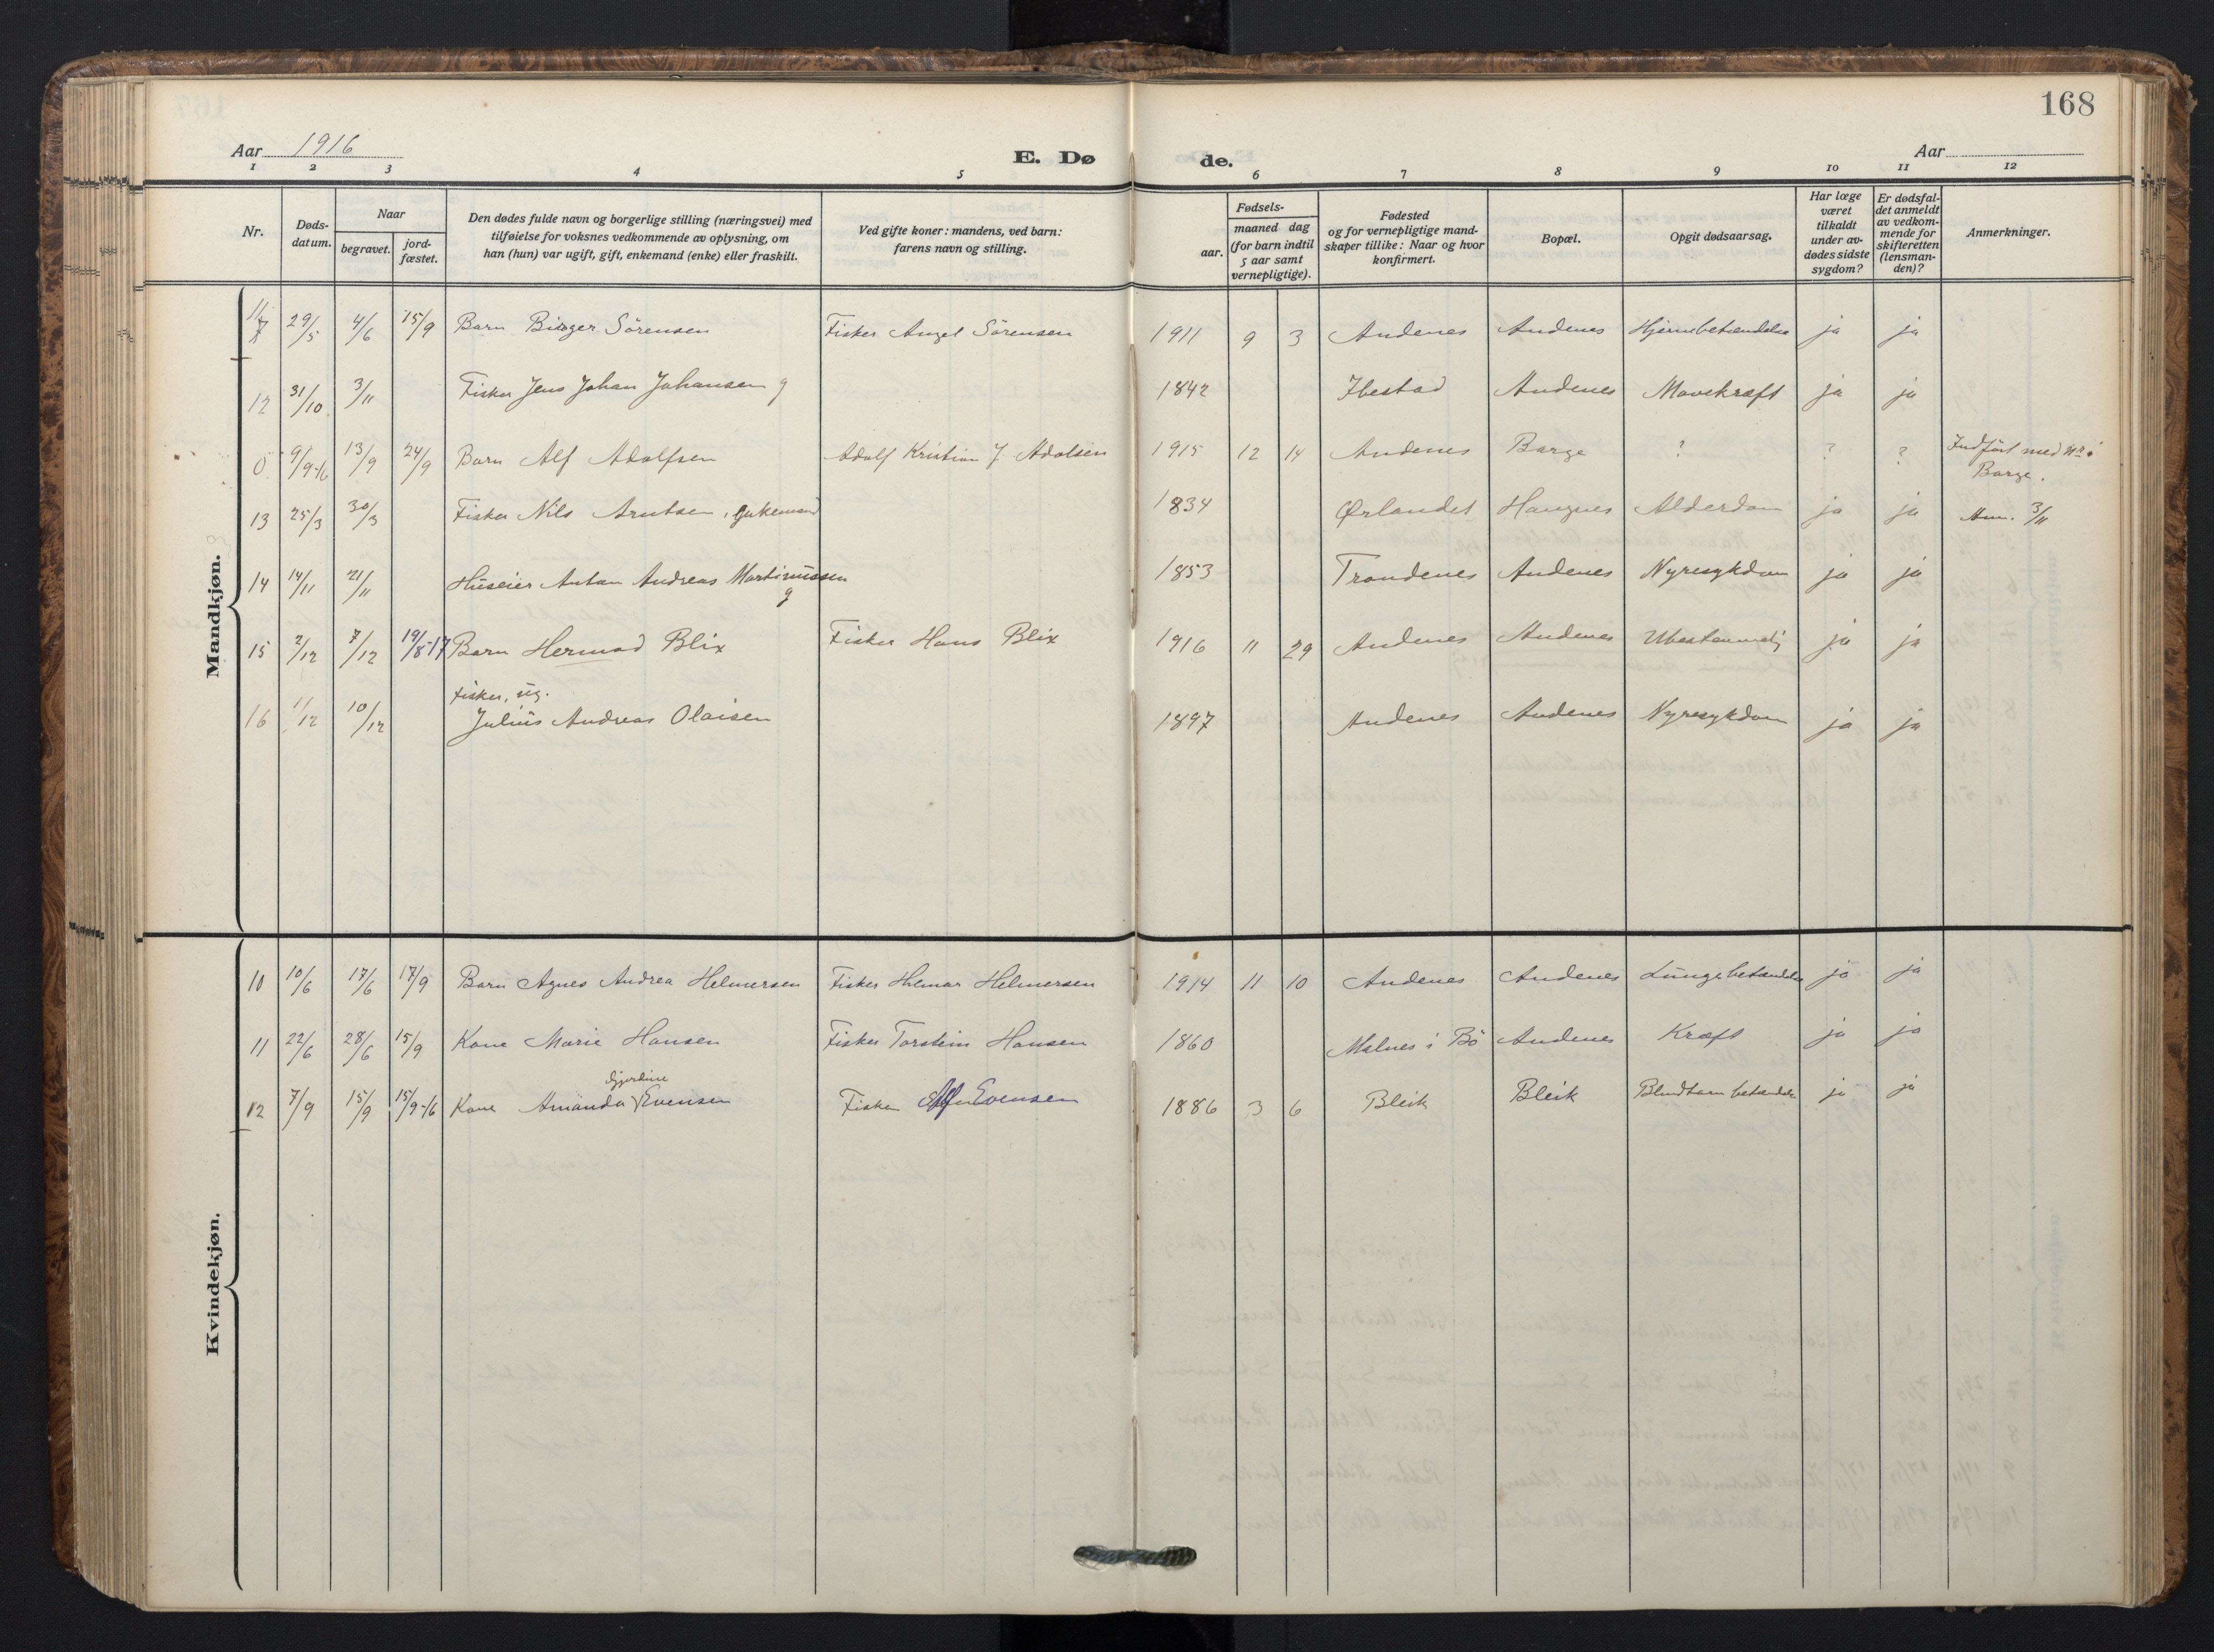 168
Aar 1916
E. Døde.
Aar
1 2 3 4 5 6 7 8 9 10 11 12
Nr.
Døds-
datum.
Naar
begravet.
jord-
fæstet.
Den dødes fulde navn og borgerlige stilling (næringsvei) med
tilføielse for voksnes vedkommende av oplysning, om
han (hun) var ugift, gift, enkemand (enke) eller fraskilt.
Ved gifte koner: mandens, ved barn:
farens navn og stilling.
Fødsels-
aar.
maaned dag
(for barn indtil
5 aar samt
vernepligtige).
Fødested
og for vernepligtige mand-
skaper tillike: Naar og hvor
konfirmert.
Bopæl.
Opgit dødsaarsag.
Har læge
været
tilkaldt
under av-
dødes sidste
sygdom?
Er dødsfal-
det anmeldt
av vedkom-
mende for
skifteretten
(lensman-
den)?
Anmerkninger.
Mandkjøn.
29/5 4/6 15/9 Barn Birger Sörensen Fisker Angel Sörensen 1911 9 3 Andenes Andenes Hjernebetændelse ja ja
12 31/10 3/11 Fisker Jens Johan Johansen g 1842 Ibestad Andenes Mavekræft ja ja
0 9/9-16 13/9 24/9 Barn Alf Adolfsen Adolf Kristian J. Adolsen 1915 12 14 Andenes Barge ? ? ? Indfört med nr. i
Barge.
13 25/3 30/3 Fisker Nils Arntsen, Enkemand 1834 Ørlandet Haugnes Alderdom ja ja Anm. 3/11
14 14/11 21/11 Huseier Anton Andreas Martinussen
g 1853 Trondenes Andenes Nyresykdom ja ja
15 2/12 7/12 19/8-17 Barn Hermod Blix Fisker Hans Blix 1916 11 29 Andenes Andenes Ubestemmelig ja ja
Fisker, ug.
16 1/12 10/12 Julius Andreas Olaisen 1897 Andenes Andenes Nyresykdom ja ja
Kvindekjøn.
10 10/6 17/6 17/9 Barn Agnes Andrea Helmersen Fisker Hilmar Helmersen 1914 11 10 Andenes Andenes Lungebetændelse ja ja
11 22/6 28/6 15/9 Kone Marie Hansen Fisker Torstein Hansen 1860 Malnes i Bö Andenes Kræft ja ja
12 7/9 15/9 15/9-16 Kone Amanda Evensen Fisker Evensen 1886 3 6 Bleik Bleik Blindtarmbetændelse ja ja